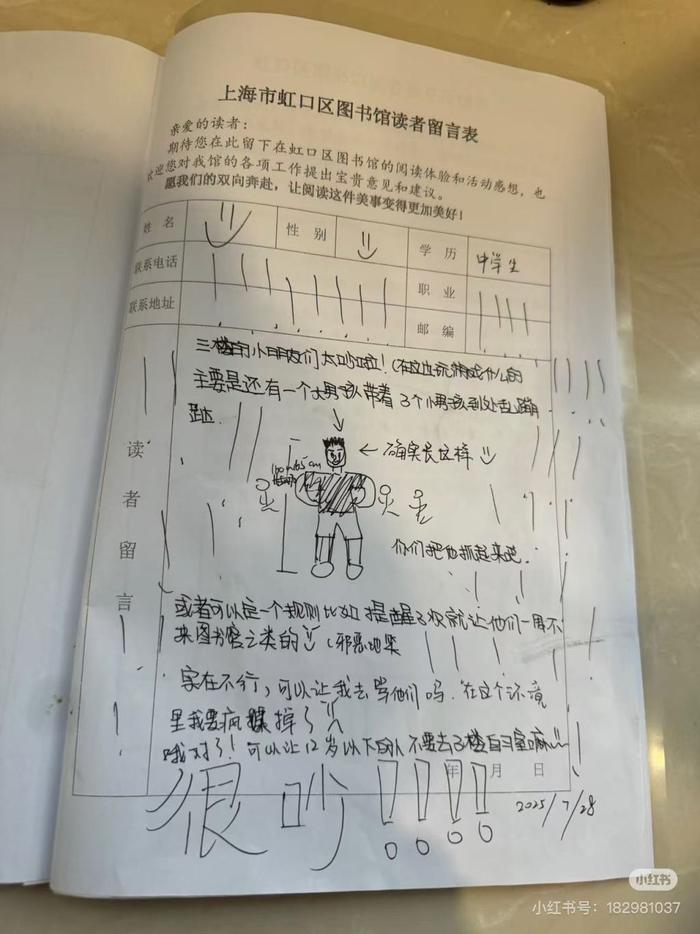 上海市虹口区图书馆读者留言表
亲爱的读者：
期待您在此留下在虹口区图书馆的阅读体验和活动感想，也
欢迎您对我馆的各项工作提出宝贵意见和建议。
愿我们的双向奔赴，让阅读这件美事变得更加美好！
姓 名 性 别 学 历 中学生
联系电话 职 业
联系地址 邮 编
读者留言
三楼的小朋友们太吵啦！(在这边玩游戏什么的
主要是还有一个大男孩带着3个小男孩到处乱蹦
跶.
← 确实长这样
165cm
你们把他抓起来吧.
或者可以定一个规则比如提醒3次就让他们一周不
来图书馆之类的 (邪恶地笑
实在不行，可以让我去骂他们吗.在这个环境
里我要疯掉了
哦对了！可以让12岁以下的人不要去3楼自习室嘛
年 月 日
很吵！！！！
2025/7/28
小红书
小红书号：182981037